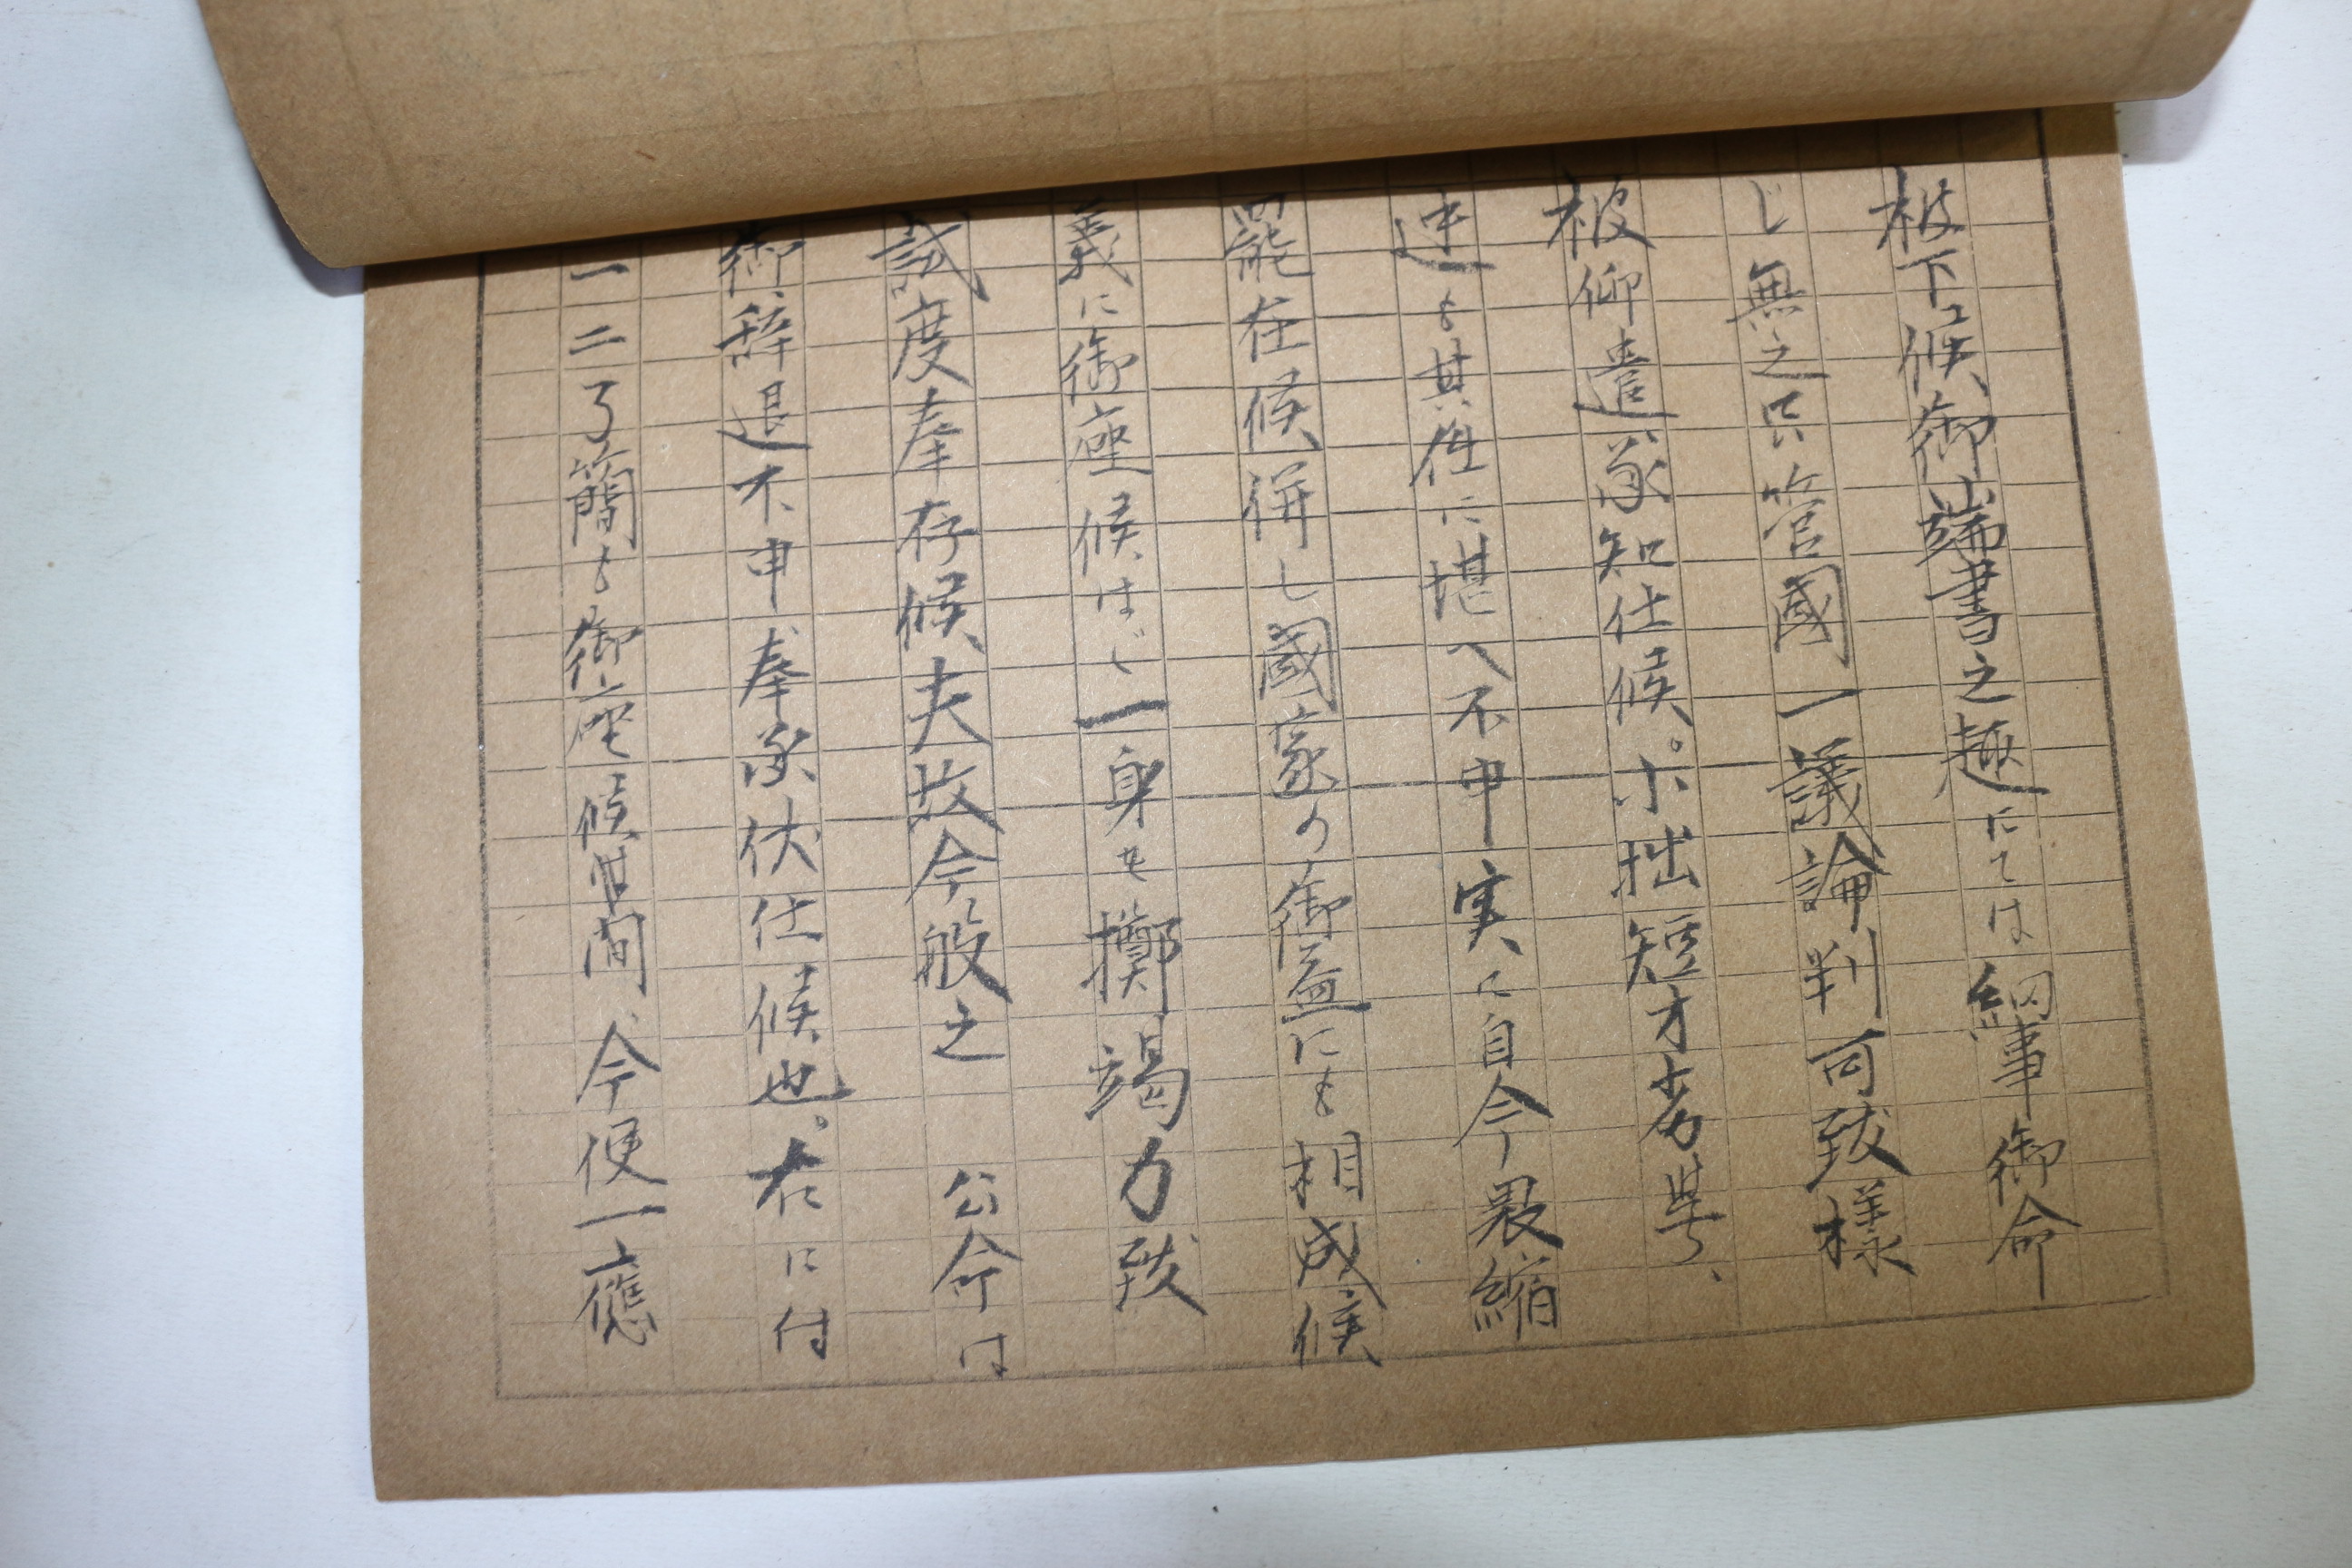 被下候御端書之趣にては細事御命
じ無之只管國一議論判可致様
被仰遣承知仕候。小拙短才劣学、
迚も其任に堪へ不申実に自今畏縮
罷在候併し國家の御益にも相成候
義に御座候はゞ一身を擲竭力致
試度奉存候夫故今般之 公命は
御辞退不申奉承伏仕候也。右に付
一二了簡も御座候間、今便一應